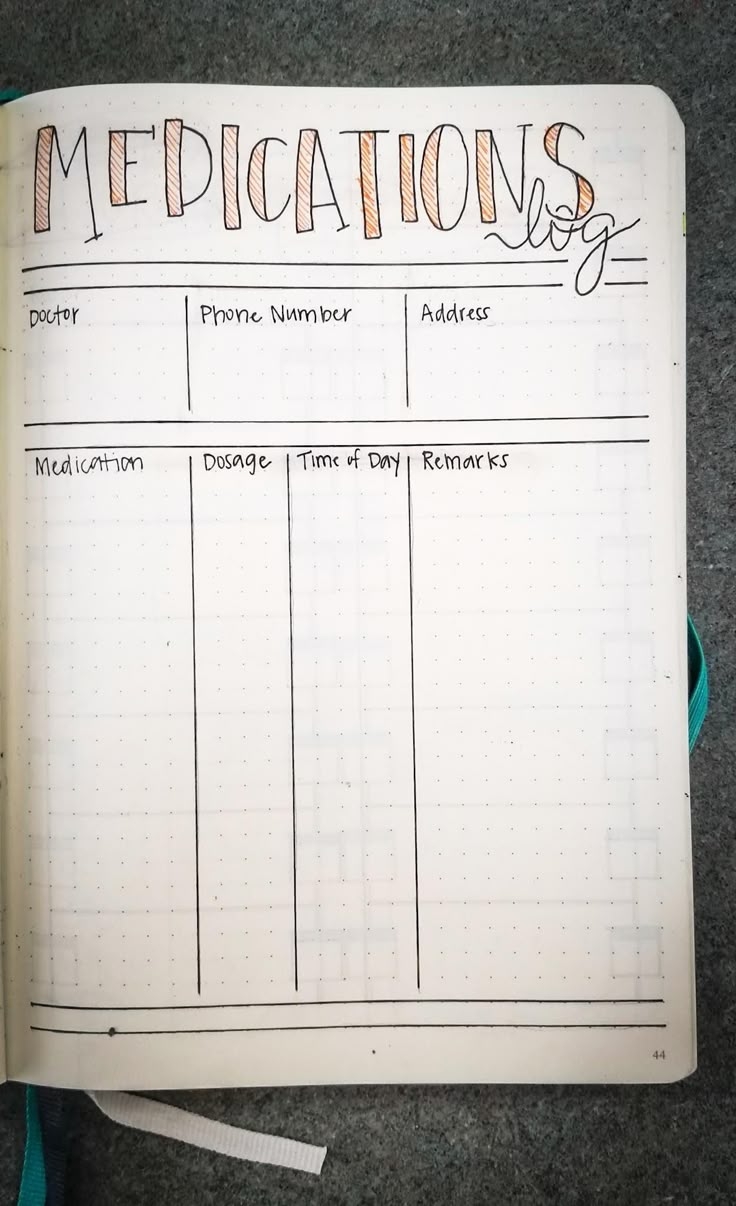 MEDICATIONS
log
Doctor Phone Number Address
Medication Dosage Time of Day Remarks
44